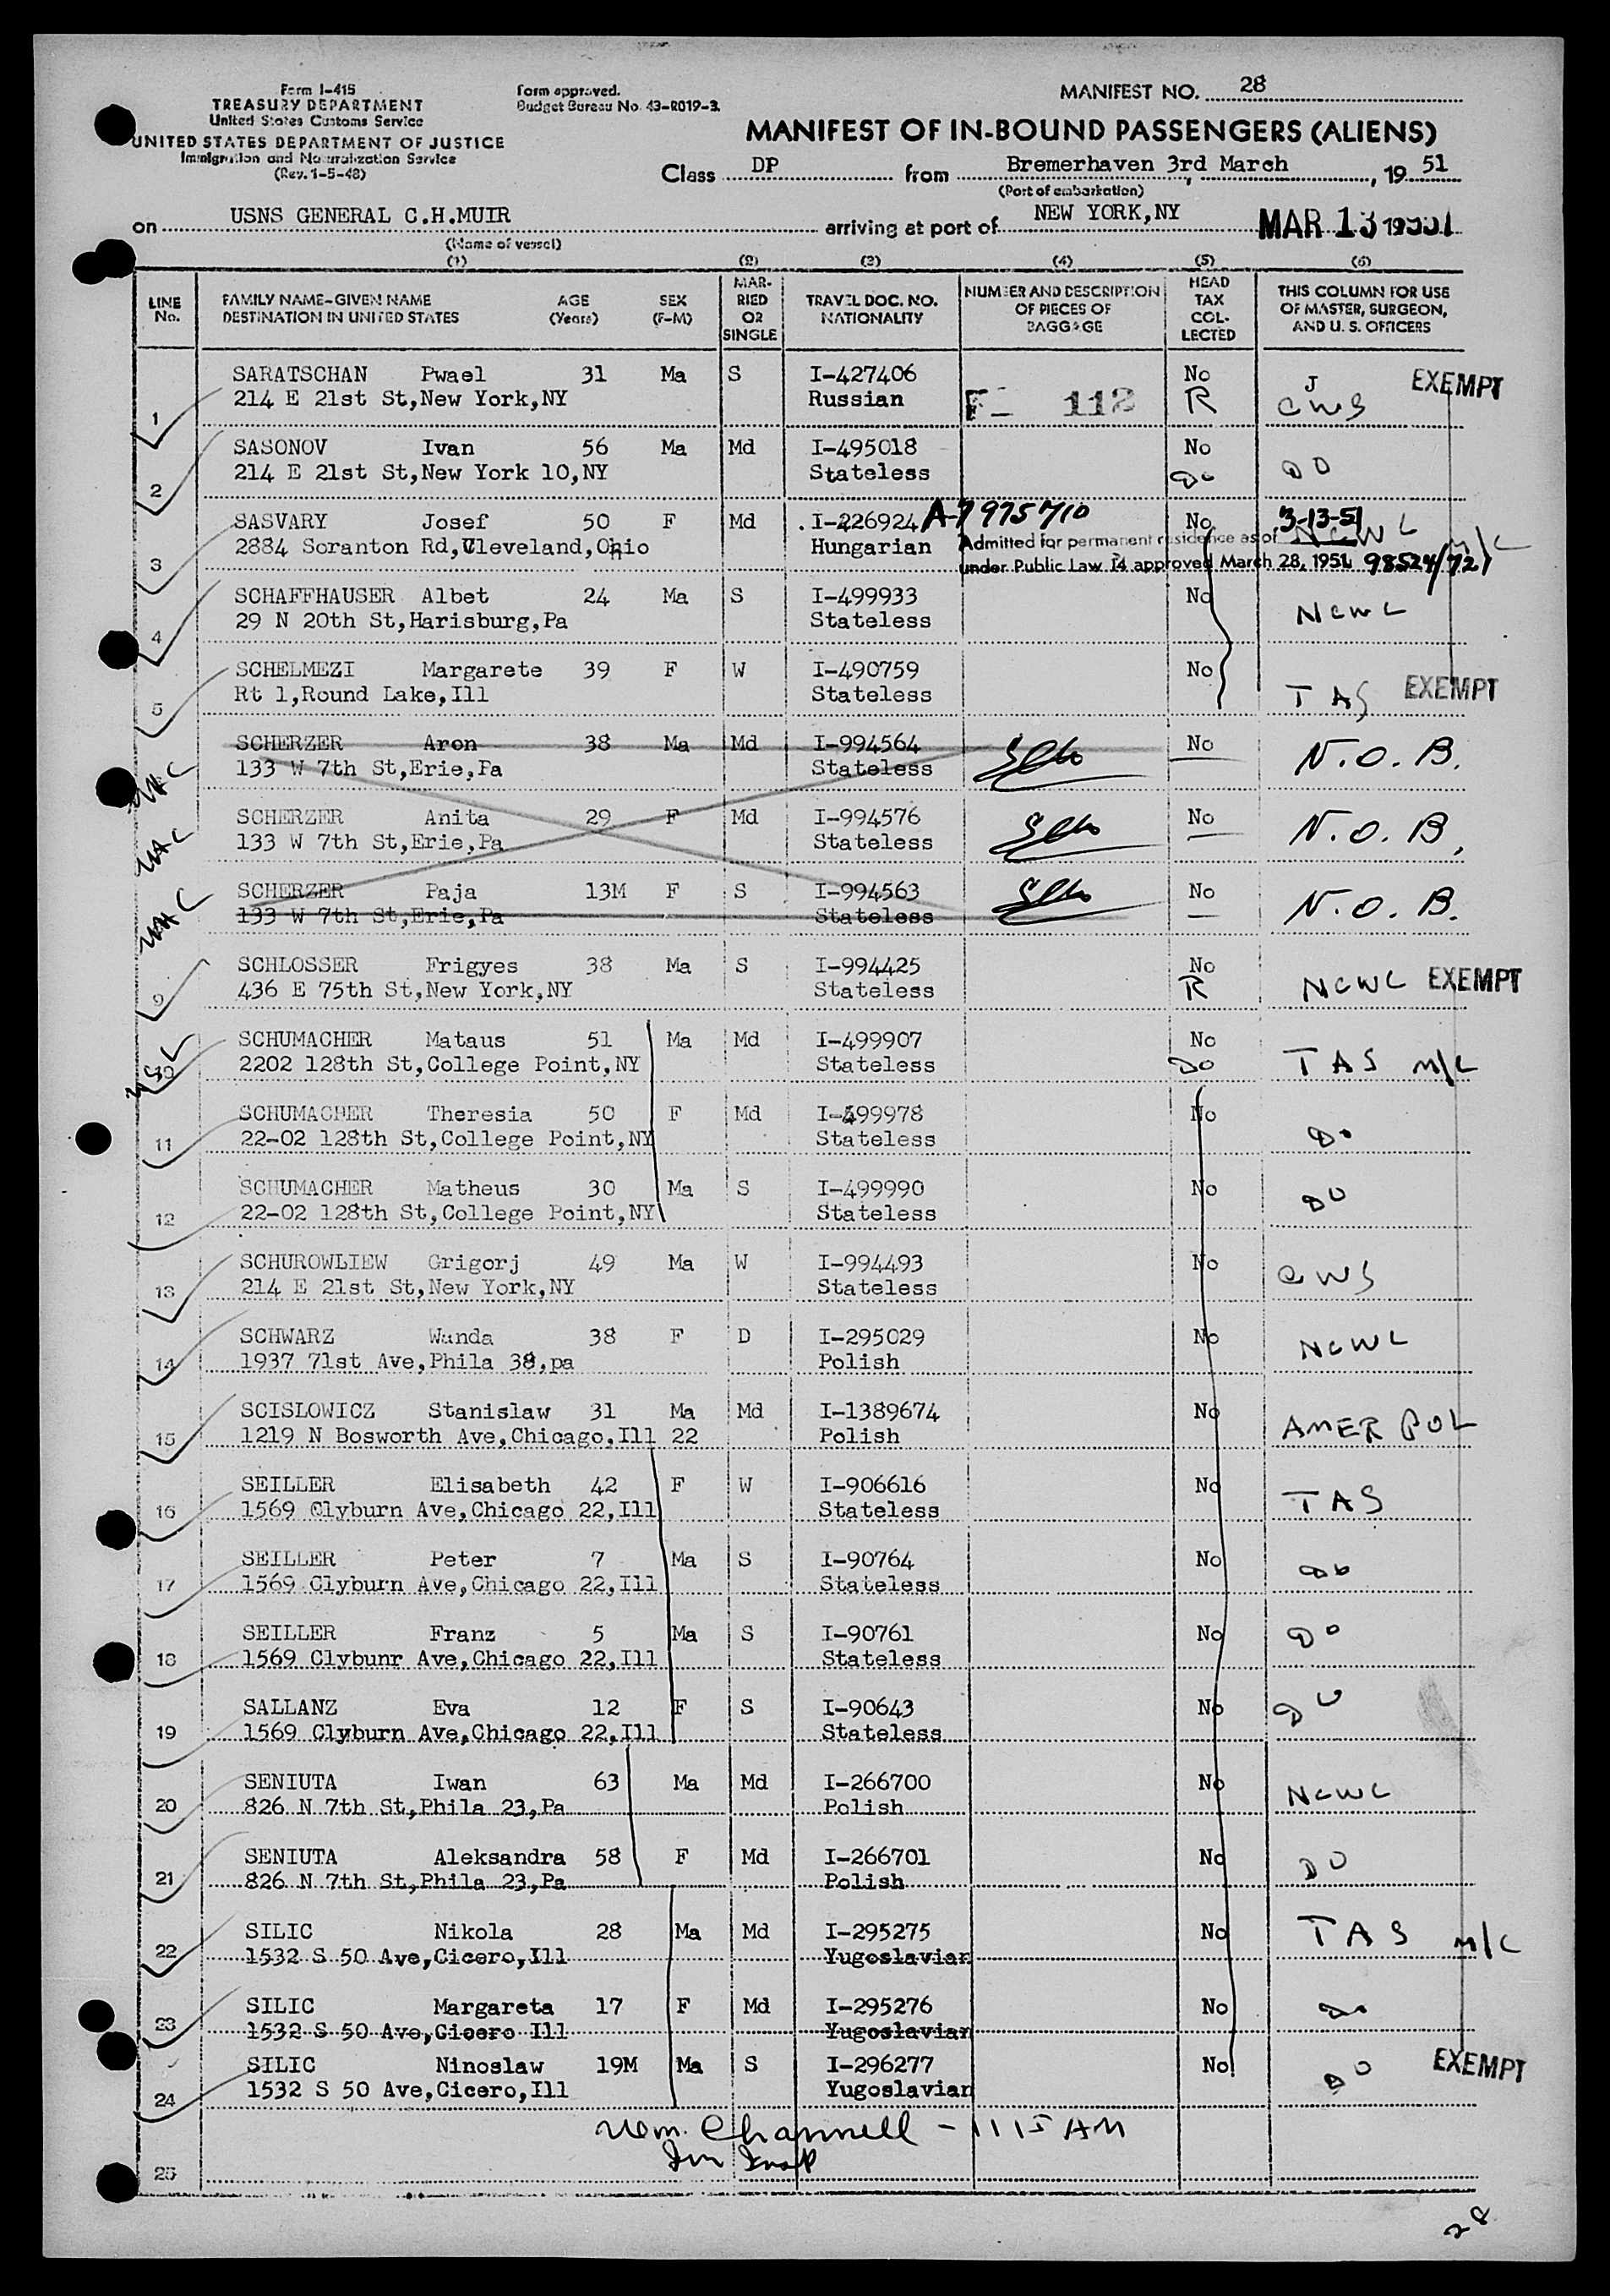 Form I-415
TREASURY DEPARTMENT
United States Customs Service
UNITED STATES DEPARTMENT OF JUSTICE
Immigration and Naturalization Service
(Rev. 1-5-48)
Form approved.
Budget Bureau No. 43-R019-3.
MANIFEST NO. 28
MANIFEST OF IN-BOUND PASSENGERS (ALIENS)
Class DP from Bremerhaven 3rd March, 19 51
(Port of embarkation)
on USNS GENERAL C.H.MUIR arriving at port of NEW YORK,NY MAR 13 1951
(Name of vessel)
(1) (2) (3) (4) (5) (6)
LINE No. FAMILY NAME-GIVEN NAME DESTINATION IN UNITED STATES AGE (Years) SEX (F-M) MARRIED OR SINGLE TRAVEL DOC. NO. NATIONALITY NUMBER AND DESCRIPTION OF PIECES OF BAGGAGE HEAD TAX COLLECTED THIS COLUMN FOR USE OF MASTER, SURGEON, AND U. S. OFFICERS
SARATSCHAN Pwael 31 Ma S I-427406 No J EXEMPT
1 214 E 21st St,New York,NY Russian 112 R CWS
SASONOV Ivan 56 Ma Md I-495018 No
2 214 E 21st St,New York 10,NY Stateless Do DO
SASVARY Josef 50 F Md I-226924 A-7 975 710 No 3-13-51 NCWL
3 2884 Soranton Rd,Cleveland,Ohio Hungarian Admitted for permanent residence as of M/C
under Public Law 14 approved March 28, 1951 98524/721
SCHAFFHAUSER Albet 24 Ma S I-499933 No
4 29 N 20th St,Harisburg,Pa Stateless NCWC
SCHELMEZI Margarete 39 F W I-490759 No
5 Rt 1,Round Lake,Ill Stateless TAS EXEMPT
SCHERZER Aron 38 Ma Md I-994564 No N.O.B.
133 W 7th St,Erie,Pa Stateless
SCHERZER Anita 29 F Md I-994576 No N.O.B.
133 W 7th St,Erie,Pa Stateless
SCHERZER Paja 13M F S I-994563 No N.O.B.
133 W 7th St,Erie,Pa Stateless
SCHLOSSER Frigyes 38 Ma S I-994425 No
9 436 E 75th St,New York,NY Stateless R NCWC EXEMPT
SCHUMACHER Mataus 51 Ma Md I-499907 No
10 2202 128th St,College Point,NY Stateless Do TAS M/C
SCHUMACHER Theresia 50 F Md I-499978 No
11 22-02 128th St,College Point,NY Stateless Do
SCHUMACHER Matheus 30 Ma S I-499990 No
12 22-02 128th St,College Point,NY Stateless DO
SCHUROWLIEW Grigorj 49 Ma W I-994493 No
13 214 E 21st St,New York,NY Stateless CWS
SCHWARZ Wanda 38 F D I-295029 No
14 1937 71st Ave,Phila 38,pa Polish NCWC
SCISLOWICZ Stanislaw 31 Ma Md I-1389674 No
15 1219 N Bosworth Ave,Chicago,Ill 22 Polish AMER POL
SEILLER Elisabeth 42 F W I-906616 No
16 1569 Clyburn Ave,Chicago 22,Ill Stateless TAS
SEILLER Peter 7 Ma S I-90764 No
17 1569 Clyburn Ave,Chicago 22,Ill Stateless Do
SEILLER Franz 5 Ma S I-90761 No
18 1569 Clybunr Ave,Chicago 22,Ill Stateless Do
SALLANZ Eva 12 F S I-90643 No
19 1569 Clyburn Ave,Chicago 22,Ill Stateless DO
SENIUTA Iwan 63 Ma Md I-266700 No
20 826 N 7th St,Phila 23,Pa Polish NCWC
SENIUTA Aleksandra 58 F Md I-266701 No
21 826 N 7th St,Phila 23,Pa Polish DO
SILIC Nikola 28 Ma Md I-295275 No TAS
22 1532 S 50 Ave,Cicero,Ill Yugoslavian M/C
SILIC Margareta 17 F Md I-295276 No Do
23 1532 S 50 Ave,Cicero Ill Yugoslavian
SILIC Ninoslaw 19M Ma S I-296277 No DO EXEMPT
24 1532 S 50 Ave,Cicero,Ill Yugoslavian
Wm. Channell - 1115 AM
25
28